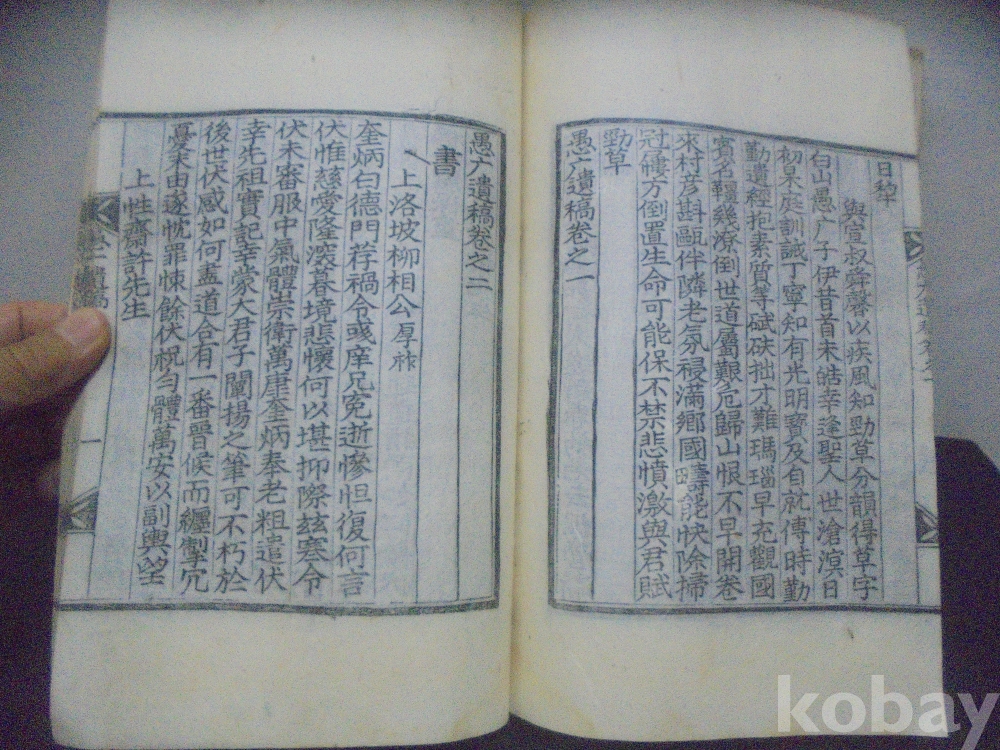 日
與宣叔舜馨以疾風知勁草分韻得草字
白山愚广子伊昔首未皓幸逢聖人世滄溟日
初杲庭訓誠丁寧知有光明寶及自就傅時勤
勤遺經抱素質等碔砆拙才難瑪瑙早充觀國
賓名韁幾潦倒世道屬艱危歸山恨不早開卷
來村彦斟甌伴隣老氛祲滿鄉國疇能快除掃
冠屨方倒置生命可能保不禁悲憤激與君賦
勁草
愚广遺稿卷之一
愚广遺稿卷之二
書
上洛坡柳相公厚祚
奎炳白德門荐禍令彧庠兄寃逝慘怛復何言
伏惟慈愛隆深暮境悲懷何以堪抑際玆寒令
伏未審服中氣體崇衛萬康奎炳奉老粗遣伏
幸先祖實記幸蒙大君子闡揚之筆可不朽於
後世伏感如何盡道合有一番晉候而纏掣冗
憂末由遂忱罪悚餘伏祝匀體萬安以副輿望
上性齋許先生
一
kobay